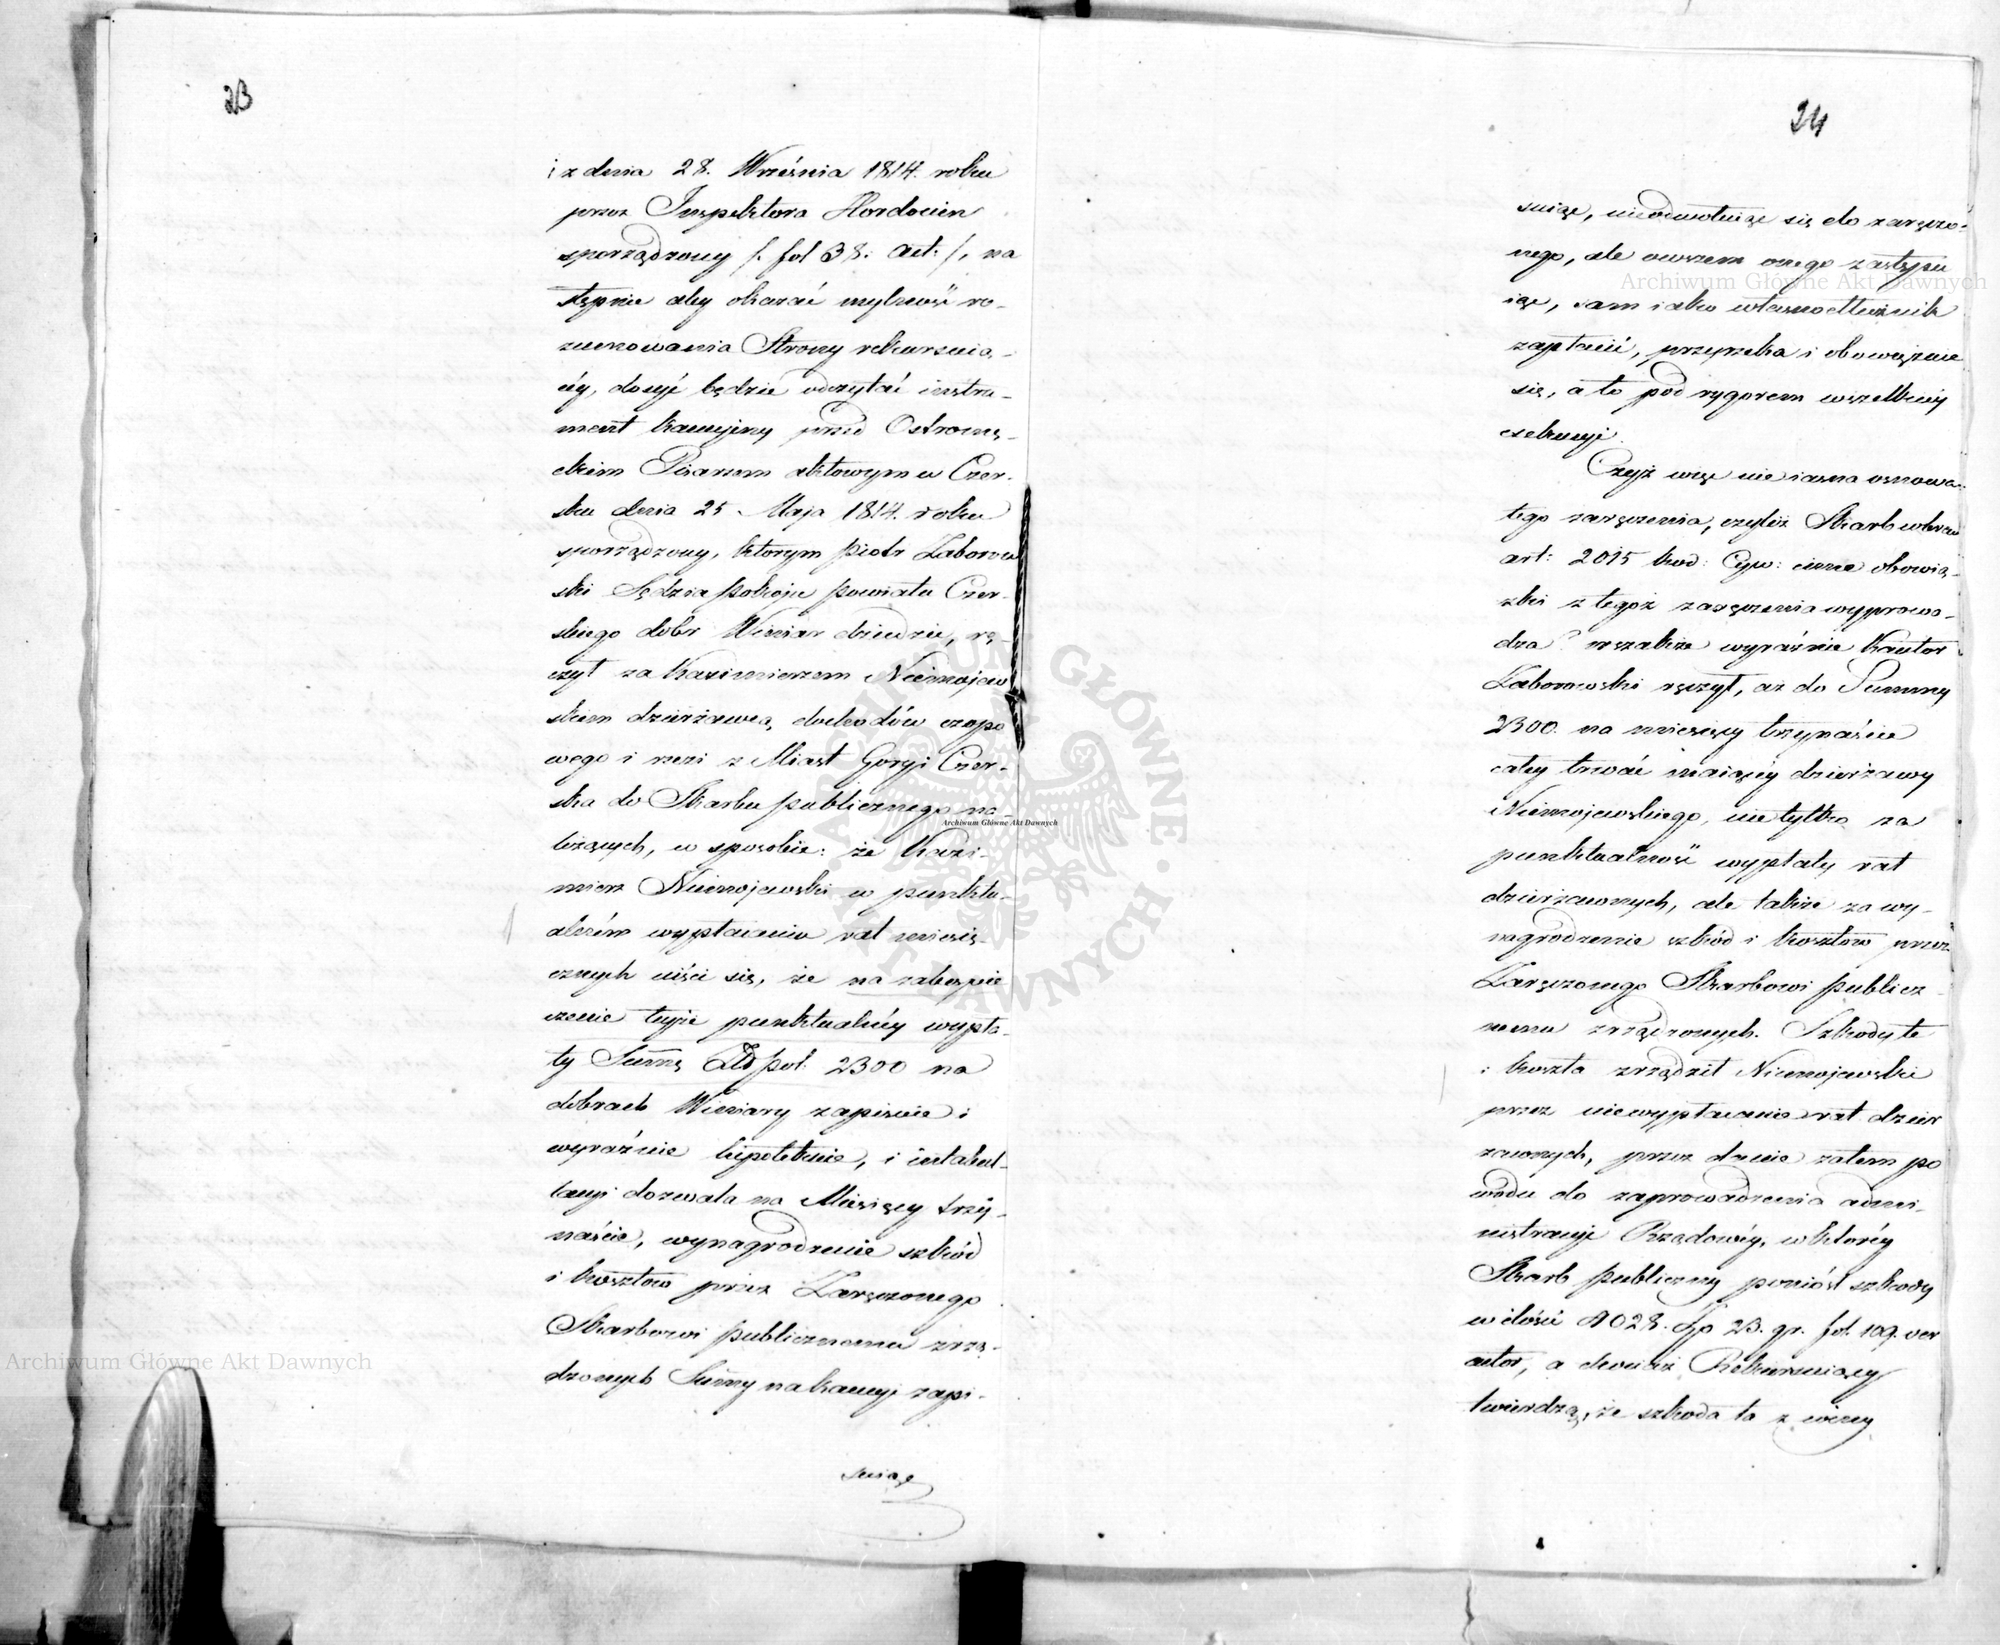 23
i z dnia 28. Września 1814. roku
przez Inspektora Hordocien
sporządzony /: fol 38: act: /, na
stępnie aby okazać mylność ro-
zumowania Strony rekursuią-
céy, dosyć będzie odczytać instru-
ment kaucyjny przed Ostrowę-
ckim Pisarzem aktowym w Czer-
sku dnia 25 Maja 1814. roku
sporządzony, którym Piotr Zaborow
ski Sędzia pokoju powiatu Czer-
skiego dobr Winiar dziedzic, rę-
czył za Kazimierzem Niemojew
skim dzierżawcą dochodów czopo
wego i rzezi z Miast Gory i Czer-
ska do Skarbu publicznego na-
leżących, w sposobie: że Kazi-
mierz Niemojewski w punktu-
alném wypłaceniu rat miesię-
cznych uiści się, że na zabespie
czenie teyże punktualnéy wypła-
ty Summę Złł pol: 2300 na
dobrach Winiary zapisuie i
wyraźnie hipotekuie, i intabul-
lacyi dozwala na Miesięcy trzy-
naście, wynagrodzenie szkód
i kosztow przez Zaręczonego
Skarbowi publicznemu zrzą-
dzonych Summy na kaucyi zapi-
suiąc
24
suiąc, nieodwołuiąc się do zaręczo-
nego, ale owszem onego zastępu
iąc, sam iako własnodłużnik
zapłacić, przyrzeka i obowięzuie
się, a to pod rygorem wszelkiéy
exekucyi.
Czyż więc nie iasna osnowa
tego zaręczenia, czyliż Skarb wbrew
art: 2015 kod: Cyw: inne obowią-
zki z tegoż zaręczenia wyprowa-
dza? wszakże wyraźnie Kautor
Zaborowski ręczył, aż do Summy
2300. na miesięcy trzynaście
całey trwać maiącéy dzierżawy
Niemojewskiego, nietylko za
punktualność wypłaty rat
dzierżawnych, ale także za wy-
nagrodzenie szkód i kosztow przez
Zaręczonego Skarbowi publicz-
nemu zrządzonych. Szkody te
i koszta zrządził Niemojewski
przez niewypłacenie rat dzier
żawnych, przez danie zatem po
wodu do zaprowadzenia admi-
nistracyi Rządowéy, w któréy
Skarb publiczny poniósł szkody
w ilości 4028. Zp 23. gr. fol. 109. ver
actor, a chociaż Rekursuiący
twierdzą, że szkoda ta z winy
Archiwum Główne Akt Dawnych
Archiwum Główne Akt Dawnych
Archiwum Główne Akt Dawnych
ARCHIWUM GŁÓWNE AKT DAWNYCH